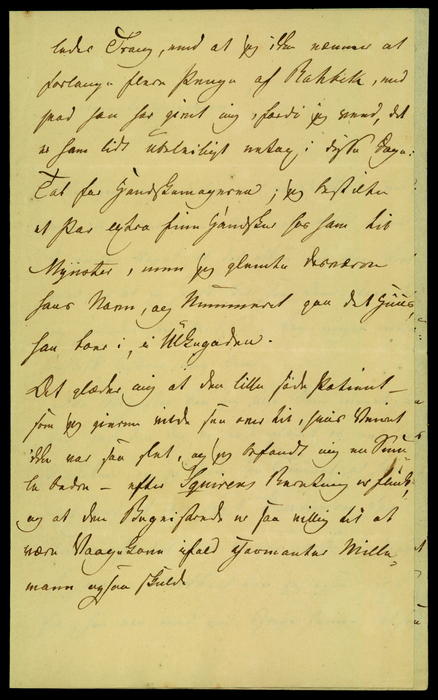 leder Trang, med at jeg ikke nænner at
forlange flere Penge af Rahbek, end
hvad han har givet mig, fordi jeg veed, det
er ham lidt ubeleiligt netop i disse Dage.
Tak for Handskemageren; jeg bestilte
et Par extra fine Handsker hos ham til
Mynster, men jeg glemte desværre
hans Navn, og Nummeret paa det Huus,
han boer i, i Ulkegaden.
Det glæder mig at den lille søde Patient –
som jeg gierne vilde see over til, hvis Veiret
ikke var saa slet, og jeg befandt mig en Smu-
le bedre – efter Squirens Beretning er flink,
og at den Bugnistrende er saa villig til at
være Vaagekone ifald Gouvernante Mille-
mann ogsaa skulde